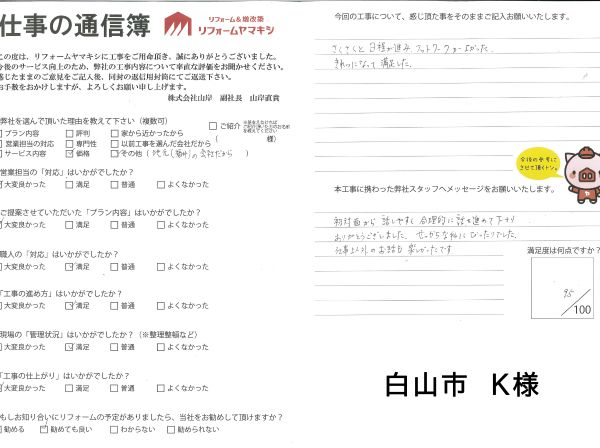 仕事の通信簿
リフォーム&増改築
リフォームヤマキシ
この度は、リフォームヤマキシに工事をご用命頂き、誠にありがとうございました。
今後のサービス向上のため、弊社の工事内容について率直な評価をお聞かせください。
感じたままのご意見をご記入後、同封の返信用封筒にてご返送下さい。
お手数をおかけしますが、よろしくお願い申し上げます。
株式会社山岸 副社長 山岸直貴
弊社を選んで頂いた理由を教えて下さい（複数可）
プラン内容 評判 家から近かったから
営業担当の対応 専門性 以前工事を選んだ会社だから
サービス内容 価格 その他（ の会社だから ）
ご紹介
（ 様）
営業担当の「対応」はいかがでしたか？
大変良かった 満足 普通 よくなかった
ご提案させていただいた「プラン内容」はいかがでしたか？
大変良かった 満足 普通 よくなかった
職人の「対応」はいかがでしたか？
大変良かった 満足 普通 よくなかった
「工事の進め方」はいかがでしたか？
大変良かった 満足 普通 よくなかった
現場の「管理状況」はいかがでしたか？（※整理整頓など）
大変良かった 満足 普通 よくなかった
「工事の仕上がり」はいかがでしたか？
大変良かった 満足 普通 よくなかった
もしお知り合いにリフォームの予定がありましたら、当社をお勧めして頂けますか？
勧める 勧めても良い わからない 勧められない
今回の工事について、感じ頂た事をそのままご記入お願いいたします。
さくさくと日程が進み、フットワークがよかった。
きれいになって満足した。
今後の参考に
させて頂くトン。
本工事に携わった弊社スタッフへメッセージをお願いいたします。
初対面から話しやすく合理的に話を進めて下さり
ありがとうございました。せっかちな私にぴったりでした。
仕事以外のお話も楽しかったです
満足度は何点ですか？
95
/100
白山市 K様